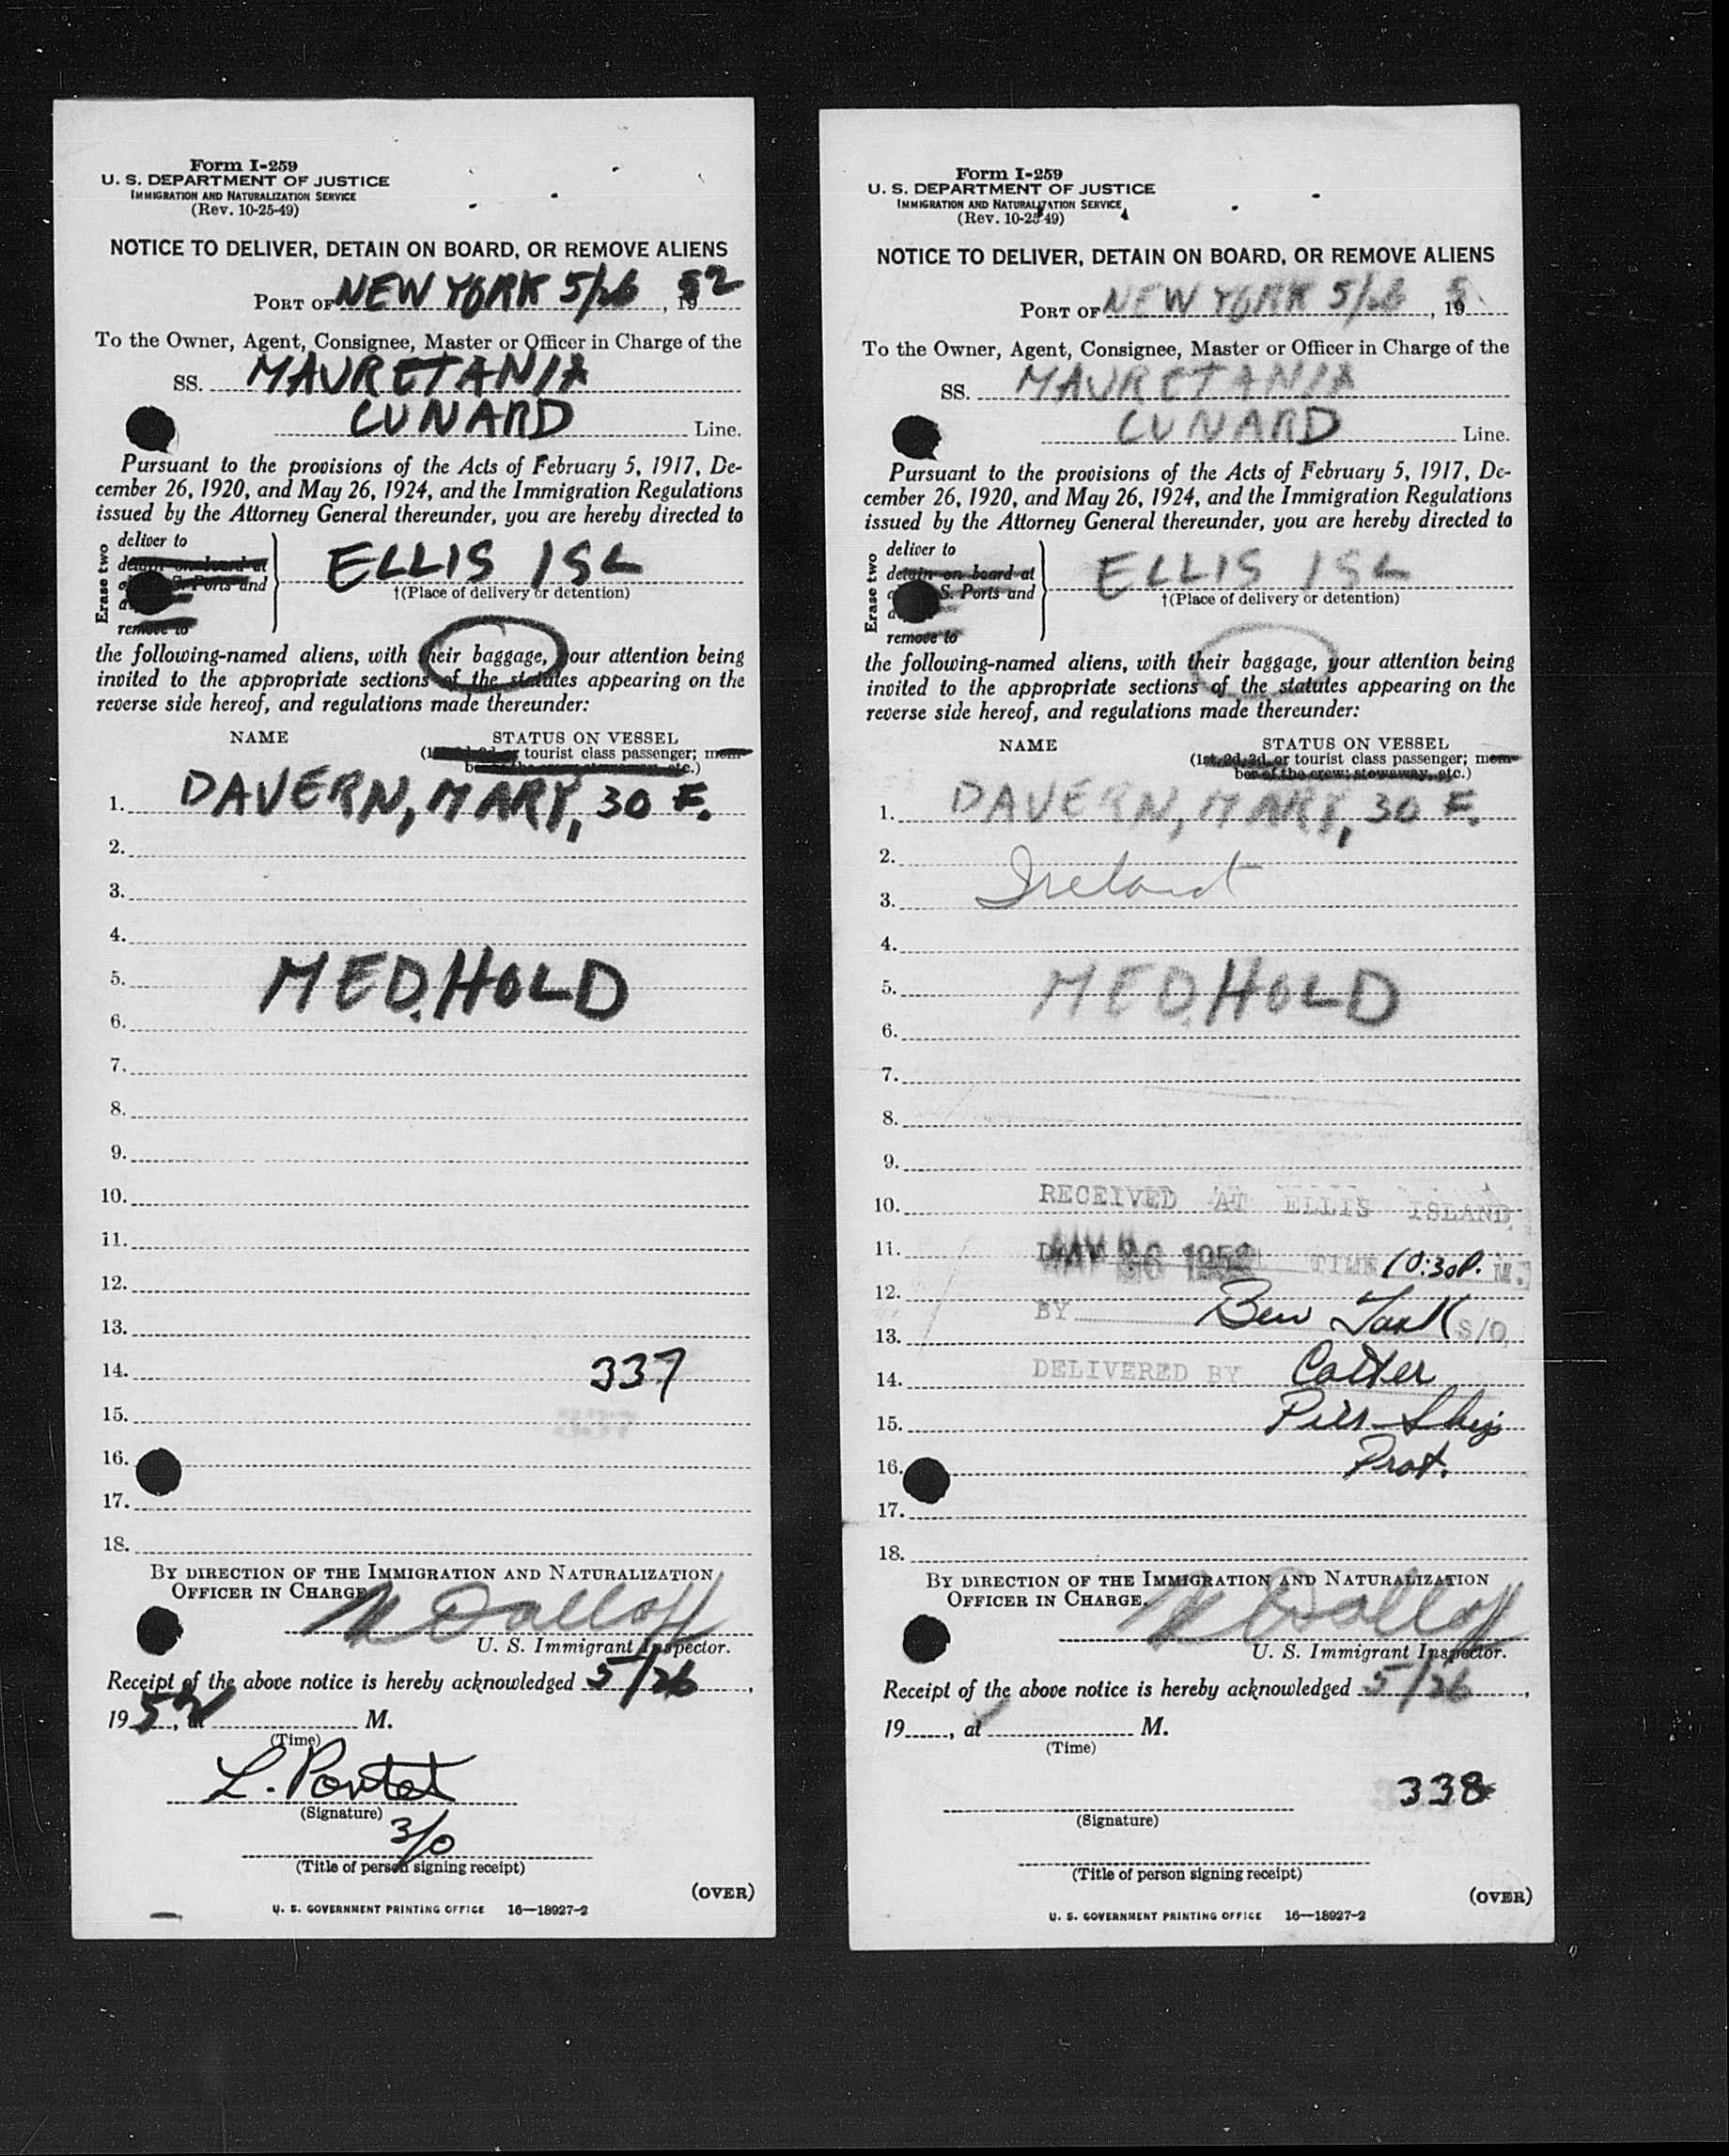 Form I-259
U. S. DEPARTMENT OF JUSTICE
IMMIGRATION AND NATURALIZATION SERVICE
(Rev. 10-25-49)
NOTICE TO DELIVER, DETAIN ON BOARD, OR REMOVE ALIENS
PORT OF NEW YORK 5/26, 1952
To the Owner, Agent, Consignee, Master or Officer in Charge of the
SS. MAURETANIA
CUNARD Line.
Pursuant to the provisions of the Acts of February 5, 1917, De-
cember 26, 1920, and May 26, 1924, and the Immigration Regulations
issued by the Attorney General thereunder, you are hereby directed to
Erase two
deliver to
detain on board at
S. Ports and
remove to
ELLIS ISL
†(Place of delivery or detention)
the following-named aliens, with their baggage, your attention being
invited to the appropriate sections of the statutes appearing on the
reverse side hereof, and regulations made thereunder:
NAME STATUS ON VESSEL
tourist class passenger; mem-
etc.)
1. DAVERN, MARY, 30 F.
2.
3.
4.
5. MED. HOLD
6.
7.
8.
9.
10.
11.
12.
13.
14. 337
15.
16.
17.
18.
BY DIRECTION OF THE IMMIGRATION AND NATURALIZATION
OFFICER IN CHARGE.
U. S. Immigrant Inspector.
Receipt of the above notice is hereby acknowledged 5/26,
1952, at M.
(Time)
L. Pontet
(Signature)
3/0
(Title of person signing receipt)
(OVER)
U. S. GOVERNMENT PRINTING OFFICE 16—18927-2
Form I-259
U. S. DEPARTMENT OF JUSTICE
IMMIGRATION AND NATURALIZATION SERVICE
(Rev. 10-25-49)
NOTICE TO DELIVER, DETAIN ON BOARD, OR REMOVE ALIENS
PORT OF NEW YORK 5/26, 195
To the Owner, Agent, Consignee, Master or Officer in Charge of the
SS. MAURETANIA
CUNARD Line.
Pursuant to the provisions of the Acts of February 5, 1917, De-
cember 26, 1920, and May 26, 1924, and the Immigration Regulations
issued by the Attorney General thereunder, you are hereby directed to
Erase two
deliver to
detain on board at
S. Ports and
remove to
ELLIS ISL
†(Place of delivery or detention)
the following-named aliens, with their baggage, your attention being
invited to the appropriate sections of the statutes appearing on the
reverse side hereof, and regulations made thereunder:
NAME STATUS ON VESSEL
(1st, 2d, 3d, or tourist class passenger; mem-
ber of the crew; stowaway, etc.)
1. DAVERN, MARY, 30 F.
2.
3. Ireland
4.
5. MED. HOLD
6.
7.
8.
9.
10. RECEIVED AT ELLIS ISLAND,
11. MAY 26 1952 TIME 10:30 P. M.
12.
13. BY Ben S/O
14. DELIVERED BY Cotter
15. Pier
16. Prot.
17.
18.
BY DIRECTION OF THE IMMIGRATION AND NATURALIZATION
OFFICER IN CHARGE.
U. S. Immigrant Inspector.
Receipt of the above notice is hereby acknowledged 5/26,
19, at M.
(Time)
338
(Signature)
(Title of person signing receipt)
(OVER)
U. S. GOVERNMENT PRINTING OFFICE 16—18927-2